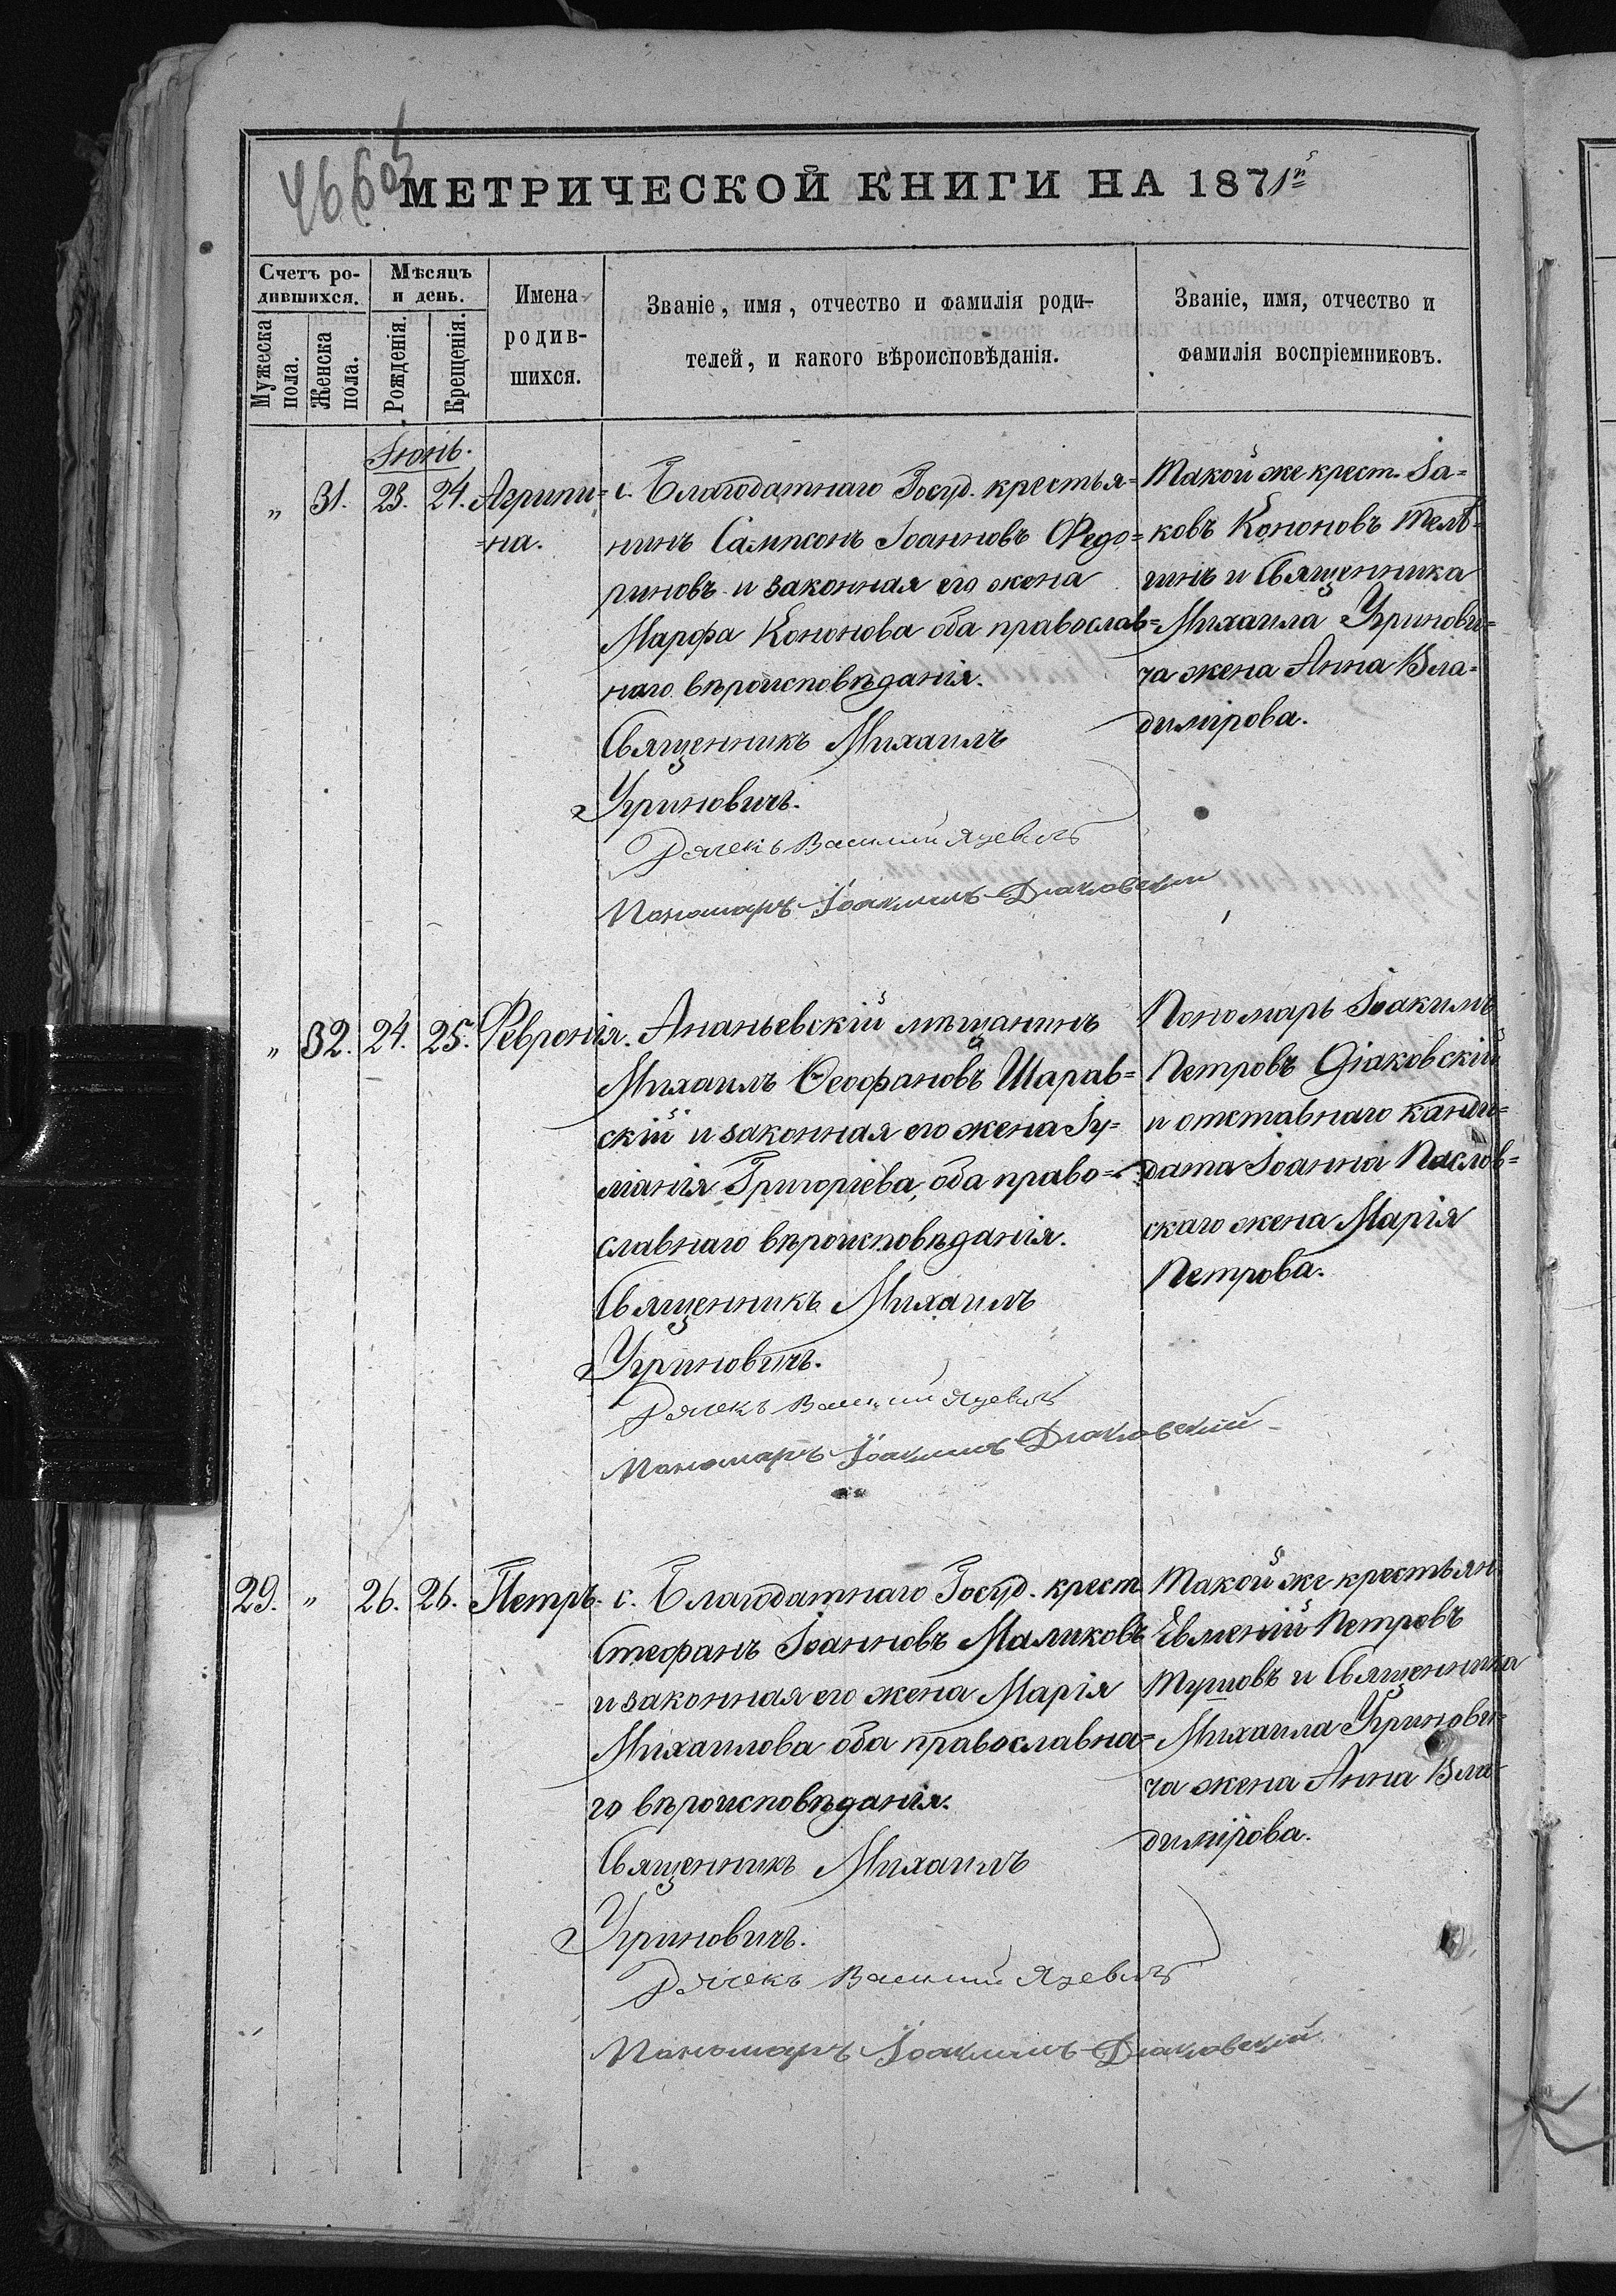 МЕТРИЧЕСКОЙ КНИГИ НА 1871й
Счетъ ро-
дившихся.
Мужеска пола.
Женска пола.
Мѣсяцъ
и день.
Рожденія.
Крещенія.
Имена
родив-
шихся.
Званіе, имя, отчество и фамилія роди-
телей, и какого вѣроисповѣданія.
Званіе, имя, отчество и
фамилія воспріемниковъ.
Іюнь.
„ 31. 23. 24. Агрипи=
=на.
с. Благодатнаго Госуд. крестья=
нинъ Сампсонъ Іоанновъ Федо=
риновъ и законная его жена
Марфа Кононова оба православ=
наго вѣроисповѣданія.
Священникъ Михаилъ
Угриновичъ.
Дячекъ Василий Яцевичъ
Пономарь Іоакимъ Діаковскій
Такой же крест. Іа=
ковъ Кононовъ
и Священника
Михаила Угринови=
ча жена Анна Вла=
димірова.
„ 32. 24. 25. Февронія.
Ананьевскій мѣщанинъ
Михаилъ Ѳеофановъ Шарав=
скій и законная его жена Іу=
ліанія Григоріева, оба право=
славнаго вѣроисповѣданія.
Священникъ Михаилъ
Угриновичъ.
Дячекъ Василий Яцевичъ
Пономарь Іоакимъ Діаковскій
Пономарь Іоакимъ
Петровъ Діаковскій
и отставнаго канди=
дата Іоанна Паслов=
скаго жена Марія
Петрова.
29. „ 26. 26. Петръ.
с. Благодатнаго Госуд. крест.
Стефанъ Іоанновъ Маликовъ
и законная его жена Марія
Михаилова оба православна=
го вѣроисповѣданія.
Священникъ Михаилъ
Угриновичъ.
Дячекъ Василий Яцевичъ
Пономарь Іоакимъ Діаковскій
Такой же крестьян.
Евменій Петровъ
и Священника
Михаила Угринови=
ча жена Анна Вла=
димірова.